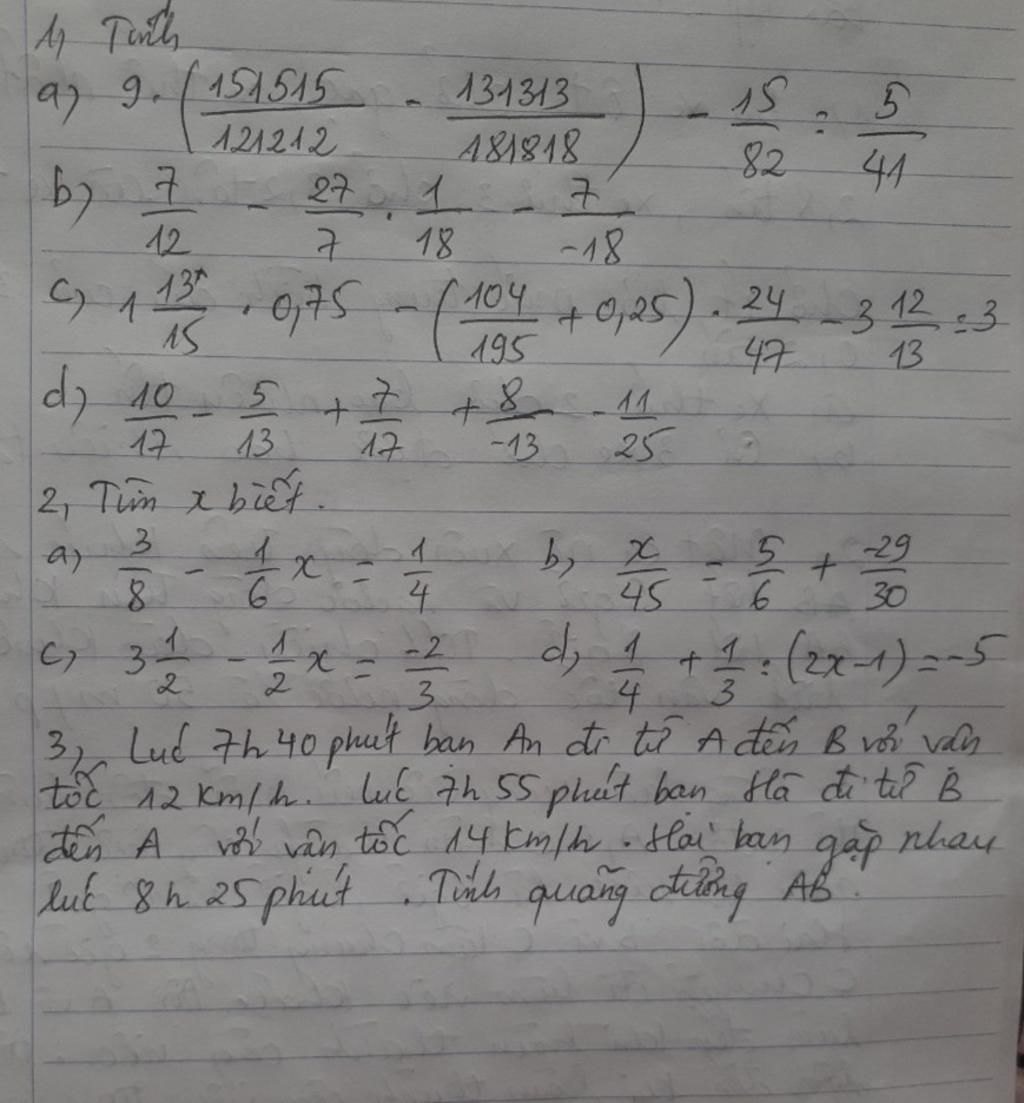 1, Tính
a) 9 . (151515/121212 - 131313/181818) - 15/82 : 5/41
b) 7/12 - 27/7 . 1/18 - 7/-18
c) 1 13/15 . 0,75 - (104/195 + 0,25) . 24/47 - 3 12/13 : 3
d) 10/17 - 5/13 + 7/17 + 8/-13 - 11/25
2, Tìm x biết.
a) 3/8 - 1/6 x = 1/4 b, x/45 = 5/6 + -29/30
c, 3 1/2 - 1/2 x = -2/3 d, 1/4 + 1/3 : (2x-1) = -5
3, Lúc 7h 40 phút bạn An đi từ A đến B với vận
tốc 12 Km/h. Lúc 7h 55 phút bạn Hà đi từ B
đến A với vận tốc 14 Km/h. Hai bạn gặp nhau
lúc 8h 25 phút. Tính quãng đường AB.